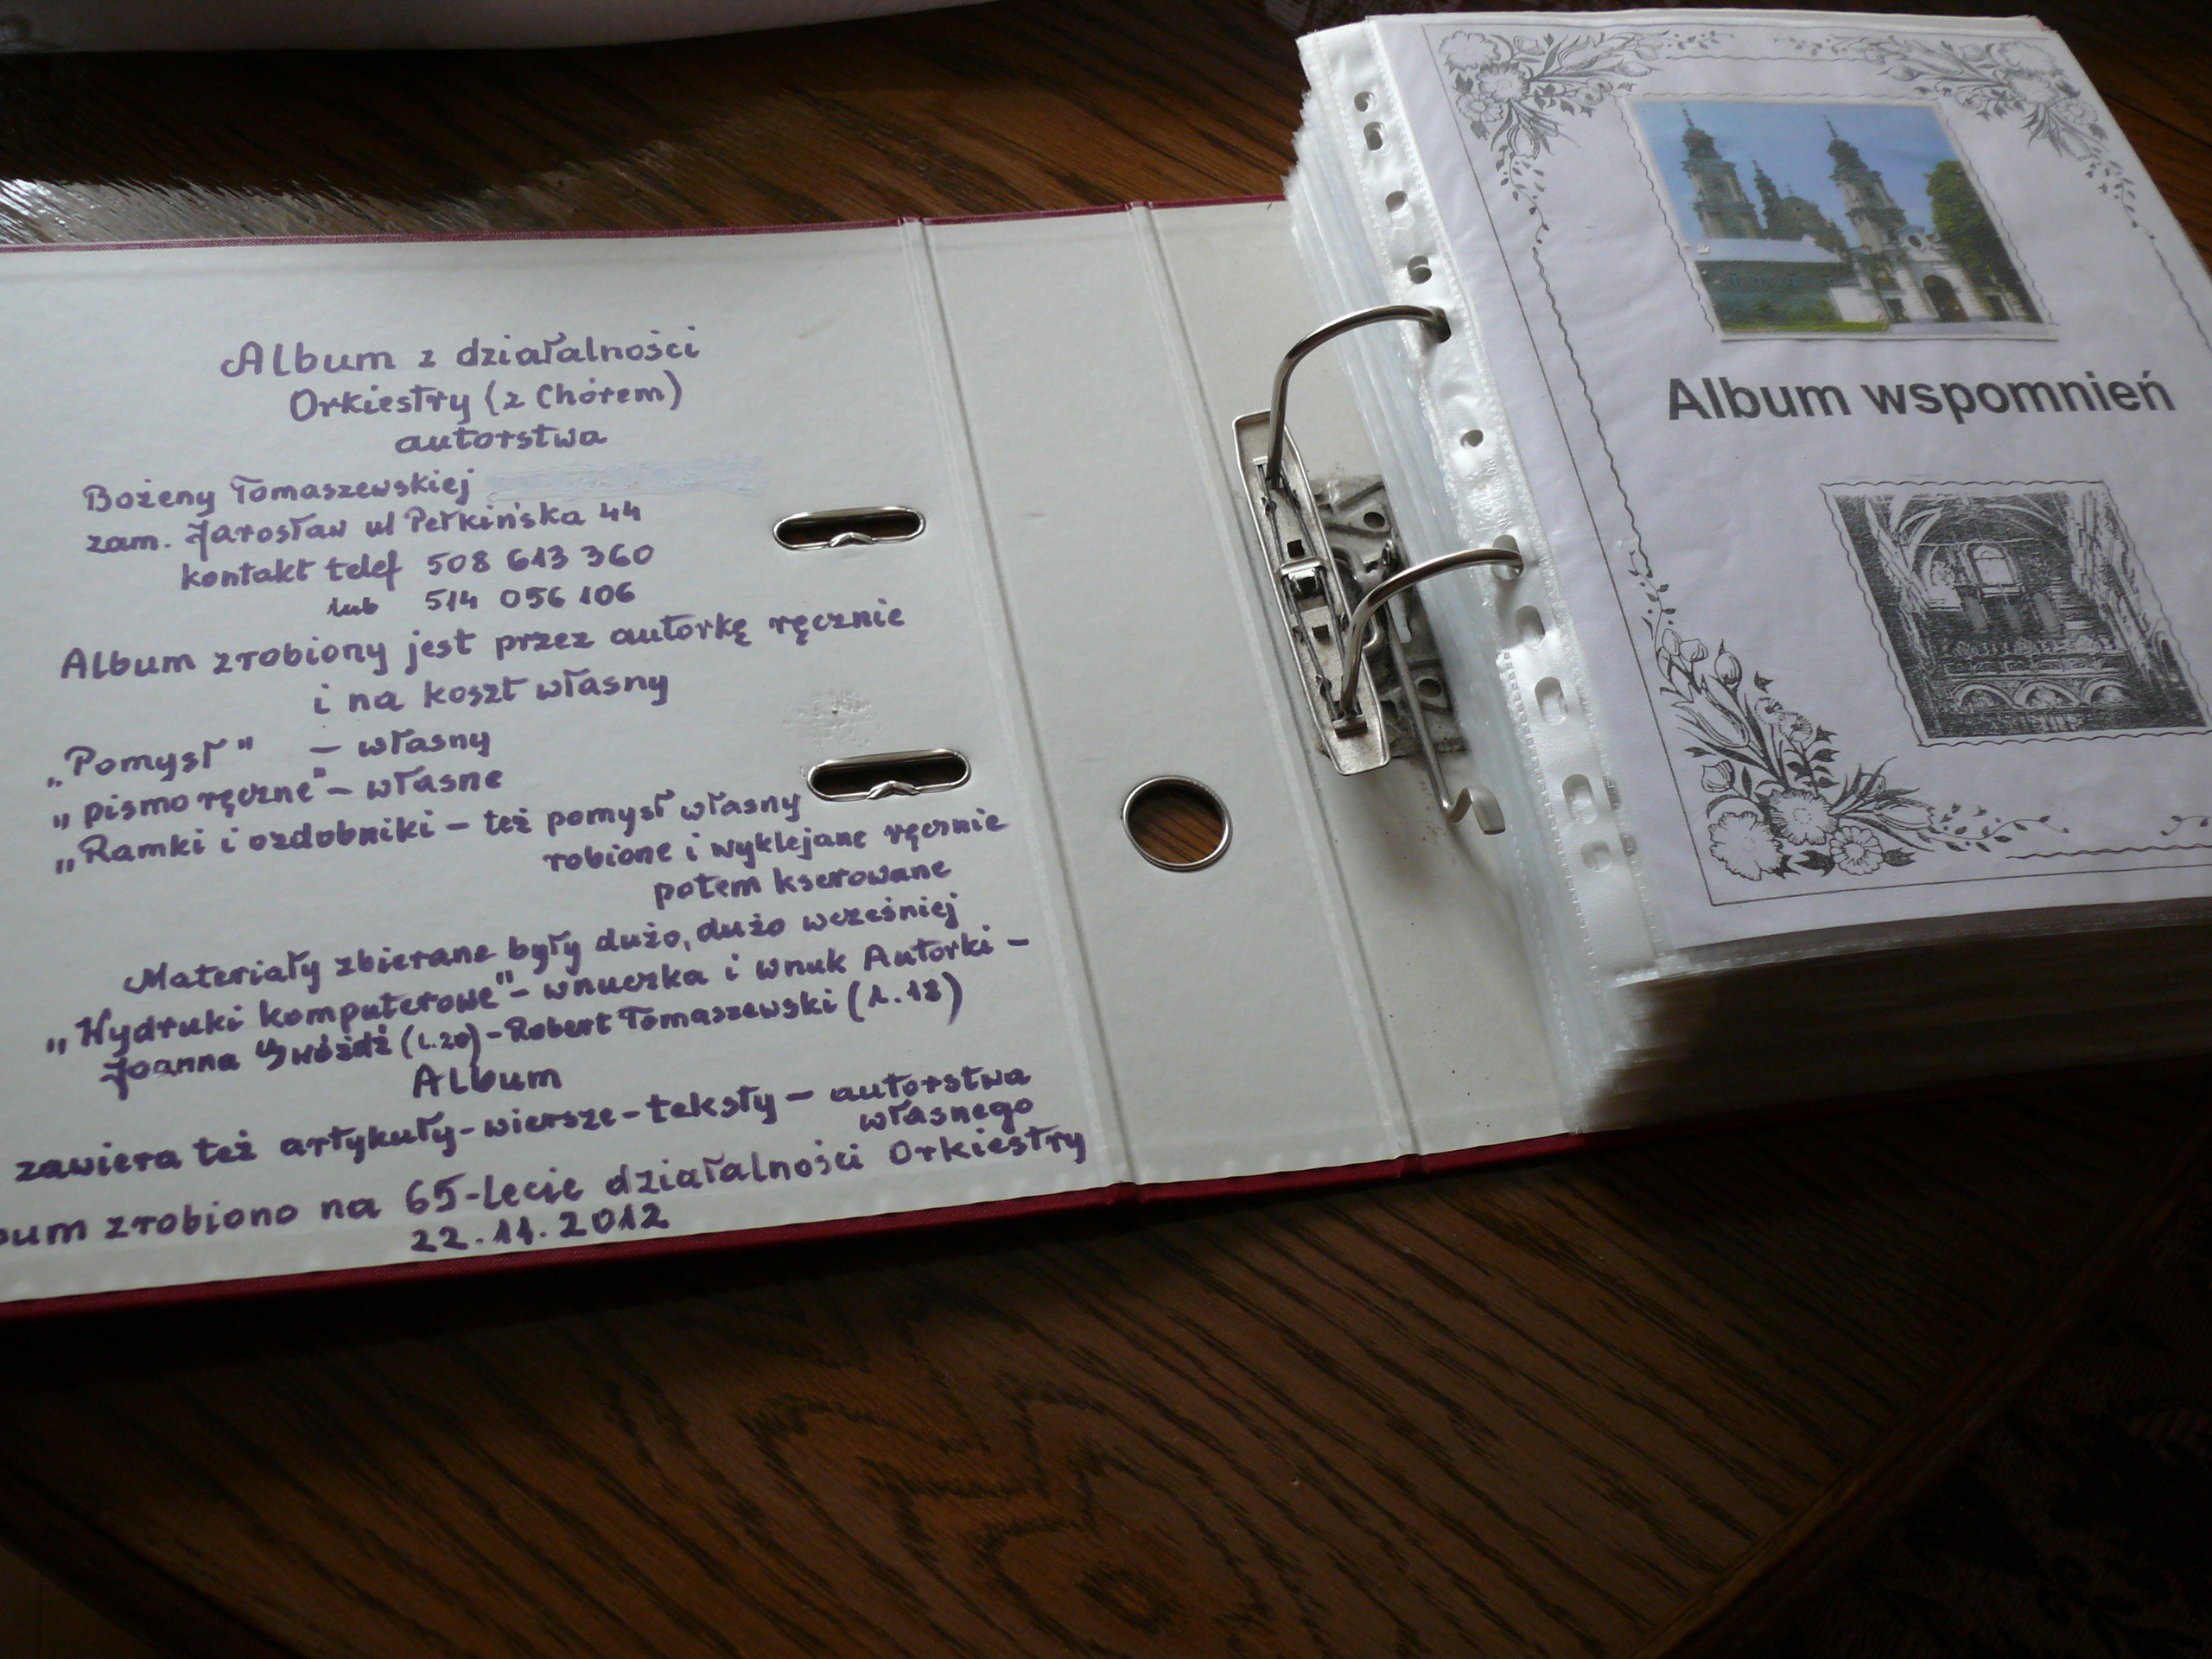 Album z działalności
Orkiestry (z Chórem)
autorstwa
Bożeny Tomaszewskiej
zam. Jarosław ul Pełkińska 44
kontakt telef 508 613 360
lub 514 056 106
Album zrobiony jest przez autorkę ręcznie
i na koszt własny
„Pomysł" – własny
„pismo ręczne" – własne
„Ramki i ozdobniki – też pomysł własny
robione i wyklejane ręcznie
potem kserowane
Materiały zbierane były dużo, dużo wcześniej
„Wydruki komputerowe" – wnuczka i wnuk Autorki –
Joanna Gwóźdź (l.20) – Robert Tomaszewski (l.18)
Album
zawiera też artykuły – wiersze – teksty – autorstwa
własnego
bum zrobiono na 65-lecie działalności Orkiestry
22.11.2012
Album wspomnień